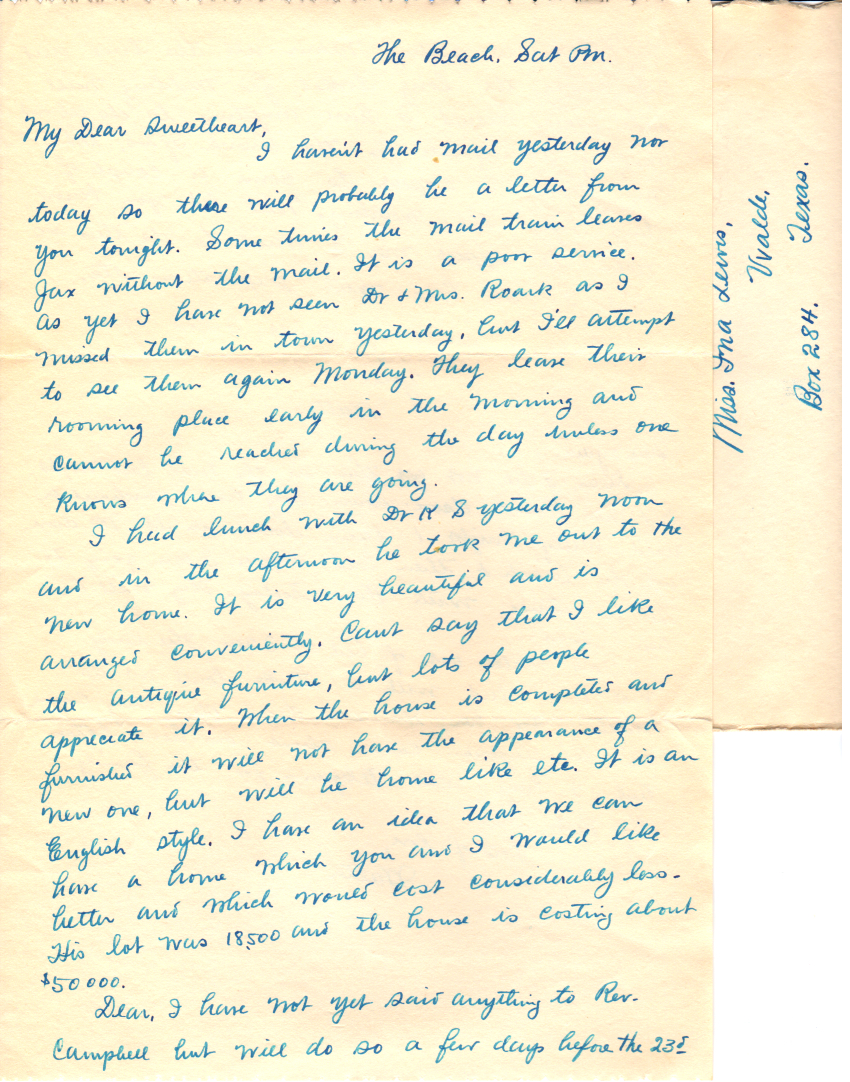 The Beach, Sat Pm.
My Dear Sweetheart,
I haven't had mail yesterday nor
today so there will probably be a letter from
you tonight. Some times the mail train leaves
Jax without the mail. It is a poor service.
As yet I have not seen Dr & Mrs. Roark as I
missed them in town yesterday, but I'll attempt
to see them again Monday. They leave their
rooming place early in the morning and
cannot be reached during the day unless one
knows where they are going.
I had lunch with Dr K S yesterday noon
and in the afternoon he took me out to the
new home. It is very beautiful and is
arranged conveniently. Cant say that I like
the antique furniture, but lots of people
appreciate it. When the house is completed and
furnished it will not have the appearance of a
new one, but will be home like etc. It is an
English style. I have an idea that we can
have a home which you and I would like
better and which would cost considerably less.
His lot was 18,500 and the house is costing about
$50000.
Dear, I have not yet said anything to Rev.
Campbell but will do so a few days before the 23d
Miss. Ina Lewis,
Uvalde,
Box 284. Texas.